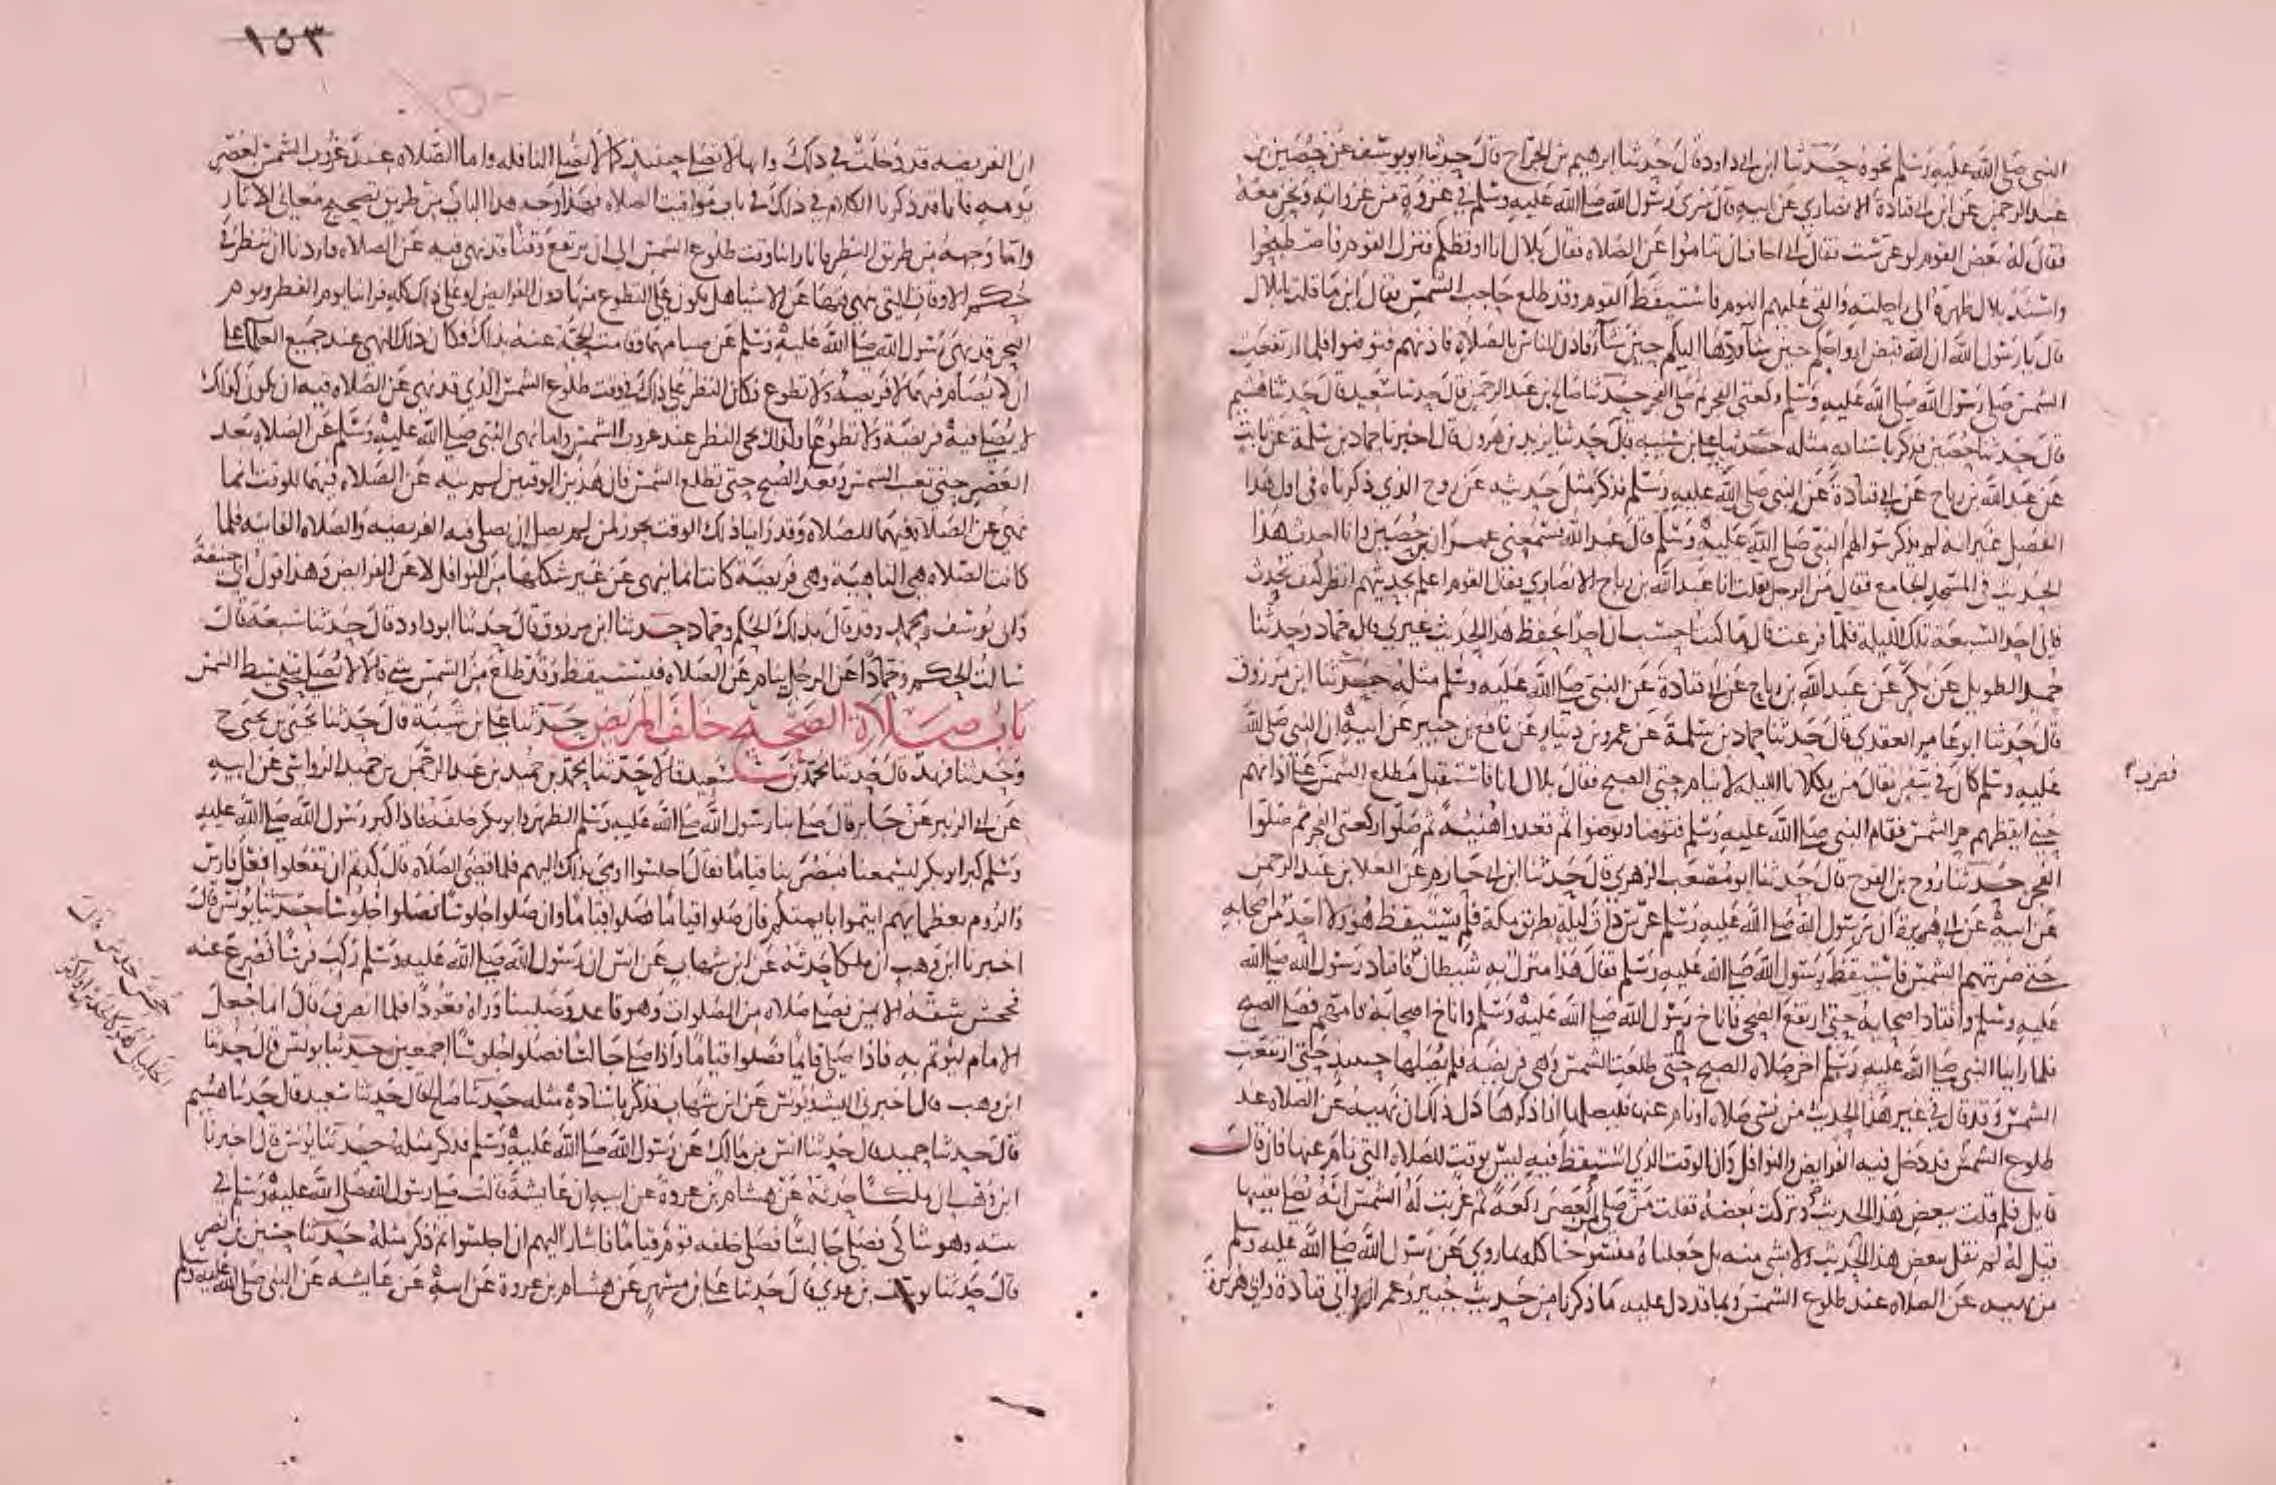 النبي صلى الله عليه وسلم نحوه حدثنا ابن ابي داود قال حدثنا ابرهيم بن الجراح قال حدثنا ابو يوسف عن حصين بن
عبد الرحمن عن ابن ابي قتادة الانصاري عن ابيه قال سرى رسول الله صلى الله عليه وسلم في غزوة من غزواته ونحن معه
فقال له بعض القوم لو عرست فقال اني اخاف ان تناموا عن الصلاه فقال بلال انا اوقظكم فنزل القوم فاضطجعوا
واسند بلال ظهره الى راحلته والقي عليهم النوم فاستيقظ القوم وقد طلع حاجب الشمس فقال اين ما قلت يا بلال
قال يا رسول الله ان الله قبض ارواحكم حين شا وردها اليكم حين شا فاذن للناس بالصلاه فاذنهم فتوضوا فلما ارتفعت
الشمس صلى رسول الله صلى الله عليه وسلم ركعتي الفجر ثم صلى الفجر حدثنا صالح بن عبد الرحمن قال حدثنا سعيد قال حدثنا هشيم
قال حدثنا حصين فذكر باسناده مثله حدثنا علي بن شيبه قال حدثنا يزيد بن هرون قال اخبرنا حماد بن سلمة عن ثابت
عن عبد الله بن رباح عن ابي قتادة عن النبي صلى الله عليه وسلم فذكر مثل حديثه عن روح الذي ذكرناه في اول هذا
الفصل غير انه لم يذكر سوالهم النبي صلى الله عليه وسلم قال عبد الله فسمعني عمران بن حصين وانا احدث هذا
الحديث في المسجد الجامع فقال من الرجل فقلت انا عبد الله بن رباح الانصاري فقال القوم اعلم بحديثهم انظر كيف تحدث
فاني احد السبعة تلك الليلة فلما فرغت قال ما كنت احسب ان احدا يحفظ هذا الحديث غيري قال حماد وحدثنا
حميد الطويل عن بكر عن عبد الله بن رباح عن ابي قتادة عن النبي صلى الله عليه وسلم مثله حدثنا ابن مرزوق
قال حدثنا ابو عامر العقدي قال حدثنا حماد بن سلمة عن عمرو بن دينار عن نافع بن جبير عن ابيه ان النبي صلى الله
عليه وسلم كان في سفر فقال من يكلانا الليله لا ينام حتى الصبح فقال بلال انا فاستقبل مطلع الشمس على اذانهم
فضرب
حتى ايقظهم حر الشمس فقام النبي صلى الله عليه وسلم فتوضا وتوضوا ثم قعدوا هنيهة ثم صلوا ركعتي الفجر ثم صلوا
الفجر حدثنا روح بن الفرج قال حدثنا ابو مصعب الزهري قال حدثنا ابن ابي حازم عن العلا بن عبد الرحمن
عن ابيه عن ابي هريرة ان رسول الله صلى الله عليه وسلم عرس ذات ليلة بطريق مكة فلم يستيقظ هو ولا احد من اصحابه
حتى ضربتهم الشمس فاستيقظ رسول الله صلى الله عليه وسلم فقال هذا منزل به شيطان فاقتاد رسول الله صلى الله
عليه وسلم واقتاد اصحابه حتى ارتفع الضحى فاناخ رسول الله صلى الله عليه وسلم واناخ اصحابه فامهم فصلى الصبح
فلما راينا النبي صلى الله عليه وسلم اخر صلاة الصبح لما طلعت الشمس وهي فريضه فلم يصلها حينيذ حتى ارتفعت
الشمس وقد قال في غير هذا الحديث من نسي صلاه او نام عنها فليصلها اذا ذكرها دل ذلك ان نهيه عن الصلاه عند
طلوع الشمس قد دخل فيه الفرايض والنوافل وان الوقت الذي استيقظ فيه ليس بوقت للصلاه التي نام عنها فان قال
قايل فلم قلت ببعض هذا الحديث وتركت بعضه فقلت من صلى من العصر ركعة ثم غربت له الشمس انه يصلي بقيتها
قيل له لم نقل ببعض هذا الحديث ولا بشي منه بل جعلناه منسوخا كله بما روي عن رسول الله صلى الله عليه وسلم
من نهيه عن الصلاه عند طلوع الشمس وبما قد دل عليه ما ذكرنا من حديث جبير وعمران وابي قتادة وابي هريرة
١٥٣
ان الفريضه قد دخلت في ذلك وانها لا تصلى حينيذ كما لا تصلى النافله واما الصلاه عند غروب الشمس لعصر
يومه فانا قد ذكرنا الكلام في ذلك في باب مواقيت الصلاه فهذا وجه هذا الباب من طريق تصحيح معاني الاثار
واما وجهه من طريق النظر فانا راينا وقت طلوع الشمس الى ان ترتفع وقتا قد نهي فيه عن الصلاه فاردنا ان ننظر في
حكم الاوقات التي نهي فيها عن الاشيا هل يكون على التطوع منها دون الفرايض او على ذلك كله فراينا يوم الفطر ويوم
النحر قد نهى رسول الله صلى الله عليه وسلم عن صيامهما وقامت الحجة عنه بذلك فكان ذلك النهي عند جميع العلما على
ان لا يصام فيهما لا فريضه ولا تطوع فكان النظر على ذلك في وقت طلوع الشمس الذي قد نهي عن الصلاه فيه ان يكون كذلك
لا يصلى فيه فريضة ولا تطوعا وكذلك يجي النظر عند غروب الشمس واما نهي النبي صلى الله عليه وسلم عن الصلاه بعد
العصر حتى تغيب الشمس وبعد الصبح حتى تطلع الشمس فان هذين الوقتين لم ينه عن الصلاه فيهما للوقت انما
نهي عن الصلاه فيهما للصلاه وقد راينا ذلك الوقت يجوز لمن لم يصل ان يصلي فيه الفريضه والصلاه الفايته فلما
كانت الصلاه هي الناهية وهي فريضة كانت انما ينهى عن غير شكلها من النوافل لا عن الفرايض وهذا قول ابي حنيفة
وابي يوسف ومحمد وقد قال بذلك الحكم وحماد حدثنا ابن مرزوق قال حدثنا ابو داود قال حدثنا شعبة قال
سالت الحكم وحمادا عن الرجل ينام عن الصلاه فيستيقظ وقد طلع من الشمس شي قالا لا يصلي حتى تنبسط الشمس
باب صلاة الصحيح خلف المريض حدثنا علي بن شيبة قال حدثنا يحيى بن يحيى ح
وحدثنا فهد قال حدثنا محمد بن سعيد قالا حدثنا محمد بن حميد بن عبد الرحمن بن حميد الرواسي عن ابيه
عن ابي الزبير عن جابر قال صلى بنا رسول الله صلى الله عليه وسلم الظهر وابو بكر خلفه فاذا كبر رسول الله صلى الله عليه
وسلم كبر ابو بكر ليسمعنا فبصر بنا قياما فقال اجلسوا اومى بذلك اليهم فلما قضى الصلاه قال كدتم ان تفعلوا فعل فارس
والروم بعظمايهم ايتموا بايمتكم فان صلوا قياما فصلوا قياما وان صلوا جلوسا فصلوا جلوسا حدثنا يونس قال
اخبرنا ابن وهب ان ملكا حدثه عن ابن شهاب عن انس ان رسول الله صلى الله عليه وسلم ركب فرسا فصرع عنه
فجحش شقه الايمن فصلى صلاه من الصلوات وهو قاعد وصلينا وراه قعودا فلما انصرف قال انما جعل
الامام ليوتم به فاذا صلى قايما فصلوا قياما واذا صلى جالسا فصلوا جلوسا اجمعين حدثنا يونس قال حدثنا
ابن وهب قال اخبرني الليث ويونس عن ابن شهاب فذكر باسناده مثله حدثنا صالح قال حدثنا سعيد قال حدثنا هشيم
قال حدثنا حميد قال حدثنا انس بن مالك عن رسول الله صلى الله عليه وسلم فذكر مثله حدثنا يونس قال اخبرنا
ابن وهب ان ملكا حدثه عن هشام بن عروة عن ابيه ان عايشة قالت صلى رسول الله صلى الله عليه وسلم في
بيته وهو شاكي فصلى جالسا فصلى خلفه قوم قياما فاشار اليهم ان اجلسوا ثم ذكر مثله حدثنا حسين بن نصر
قال حدثنا يوسف بن عدي قال حدثنا علي بن مسهر عن هشام بن عروة عن ابيه عن عايشه عن النبي صلى الله عليه وسلم